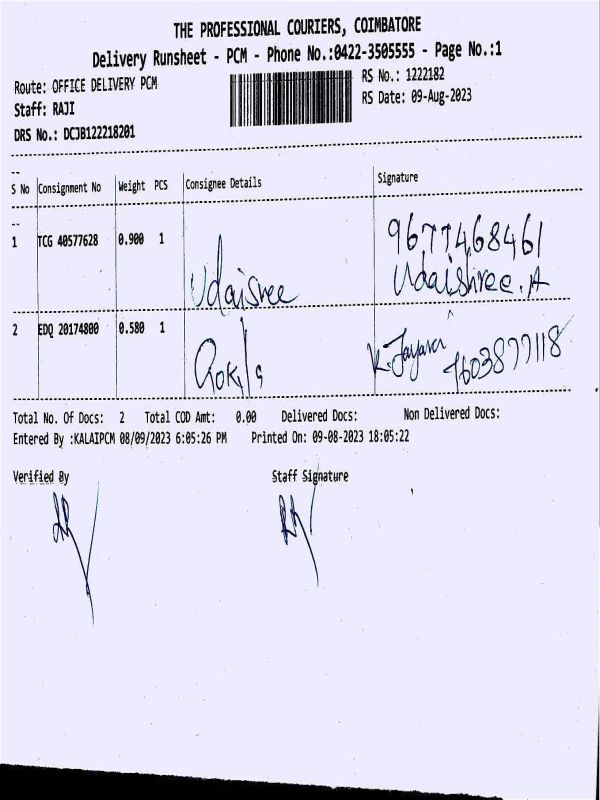 THE PROFESSIONAL COURIERS, COIMBATORE
Delivery Runsheet - PCM - Phone No.:0422-3505555 - Page No.:1
Route: OFFICE DELIVERY PCM
RS No.: 1222182
Staff: RAJI
RS Date: 09-Aug-2023
DRS No.: DCJB122218201
S No Consignment No Weight PCS Consignee Details Signature
1 TCG 40577628 0.900 1 Udaisree 9677468461
Udaishree.A
2 EDQ 20174800 0.580 1 K. 7603877118
Total No. Of Docs: 2 Total COD Amt: 0.00 Delivered Docs: Non Delivered Docs:
Entered By :KALAIPCM 08/09/2023 6:05:26 PM Printed On: 09-08-2023 18:05:22
Verified By Staff Signature